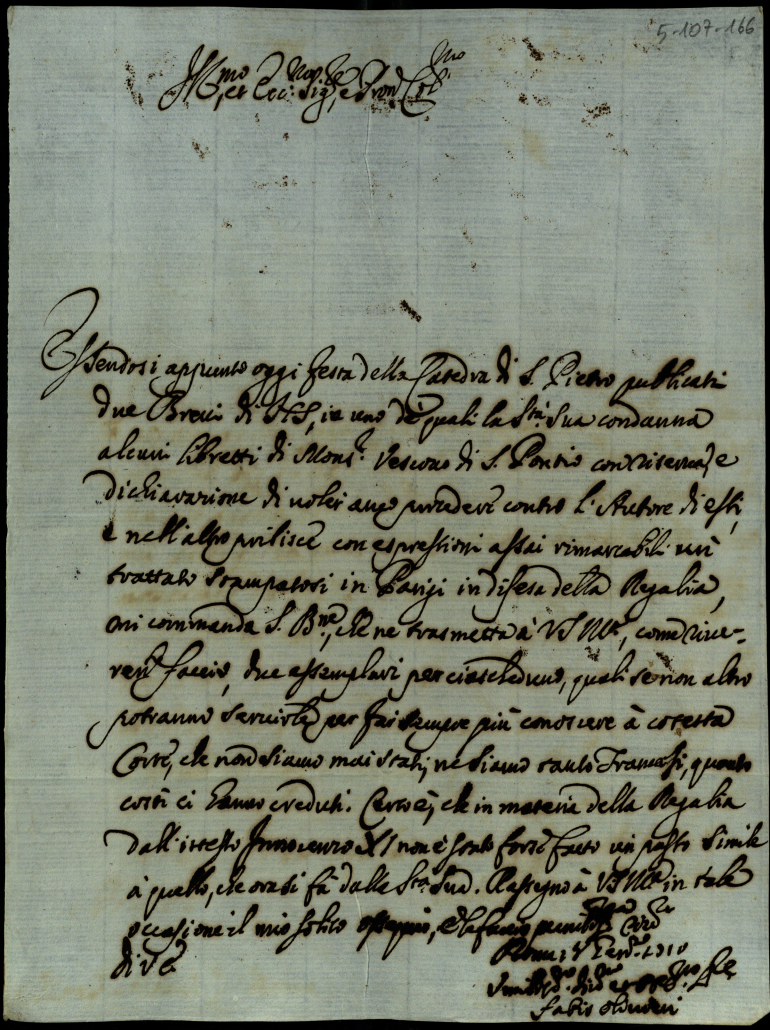 5-107-166
Ill.mo et Ecc. Sig.re e Pron. Col.mo
Essendosi appunto oggi festa della Catedra di S. Pietro publicati
due Brevi di N.S., in uno de quali la S.tà Sua condanna
alcuni libretti di Mons.r Vescovo di S. Pontio con riserva, e
dichiarazione di voler anco procedere contro l'Autore di essi,
e nell'altro con espressioni assai rimarcabili un
trattato stampatosi in Parigi in difesa della Regalia,
mi commanda S. B.ne, che ne trasmetta à V.S. Ill.ma, come rive-
rent.e faccio, due essemplari per ciascheduno, quali se non altro
potranno servirle per far sempre più conoscere à cotesta
Corte, che non siamo mai stati, ne siamo tanto Francesi, quanto
costì ci hanno creduti. Certo è, che in materia della Regalia
dall'istesso Innocenzo XI non è stato forse fatto un passo simile
à quello, che ora si fà dalla S.tà Sua. Rassegno à V.S. Ill.ma in tale
occasione il mio solito ossequio, e le faccio
di V.E.
Roma 1710
Fabio Olivieri